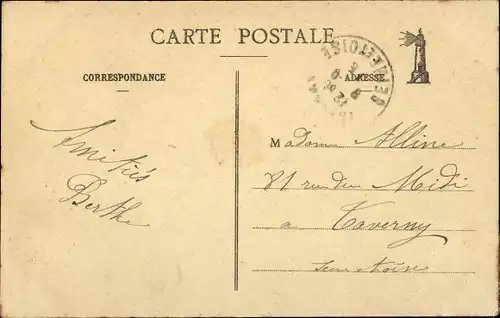 CARTE POSTALE
CORRESPONDANCE
ADRESSE
SEINE ET OISE
Amitiés
Berthe
Madame Alline
81 rue du Midi
a Taverny
Seine et Oise